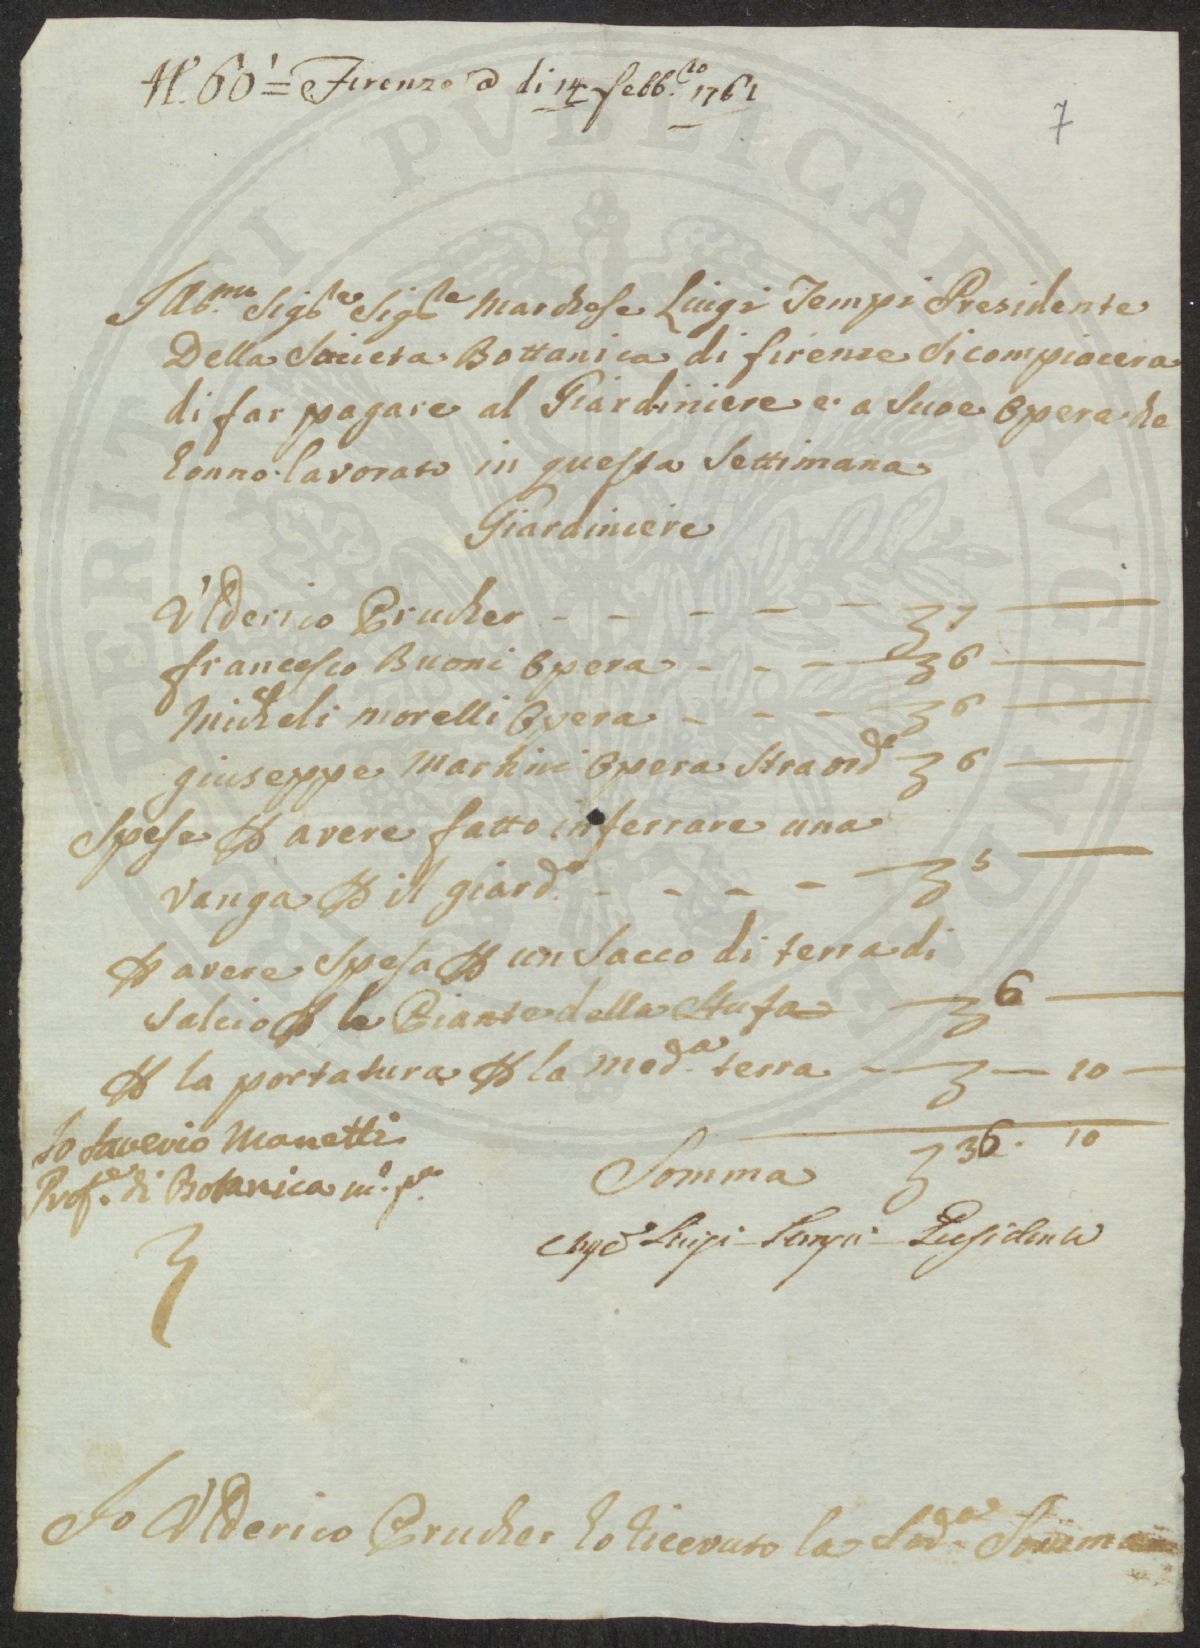 N.° 60 = Firenze a di 14 febb.ro 1761
7
Ill.mo Sig.re Sig.re Marchese Luigi Tempi Presidente
Della Societa Bottanica di firenze Si compiacera
di far pagare al Giardiniere e a Sue Opera che
honno lavorato in questa Settimana
Giardiniere
Ulderico Prucher - - - - - 7
francesco Buoni Opera - - - 6
Micheli morelli Opera - - - 6
giuseppe Martini Opera Straord.e 6
Spese P avere fatto inferrare una
vanga P il giard.e - - - - 5
P avere Spesa P un Sacco di terra di
Salcio P le Piante della Stufa 6
P la portatura P la med.a terra - - 10 -
Io Saverio Manetti
Prof.e di Botanica m.o p.a
Somma 36. 10
Luigi Tempi Presidente
Io Ulderico Prucher ho ricevuto la Sod.a Somma
PERITATI PVBLICAE AVGENDAE